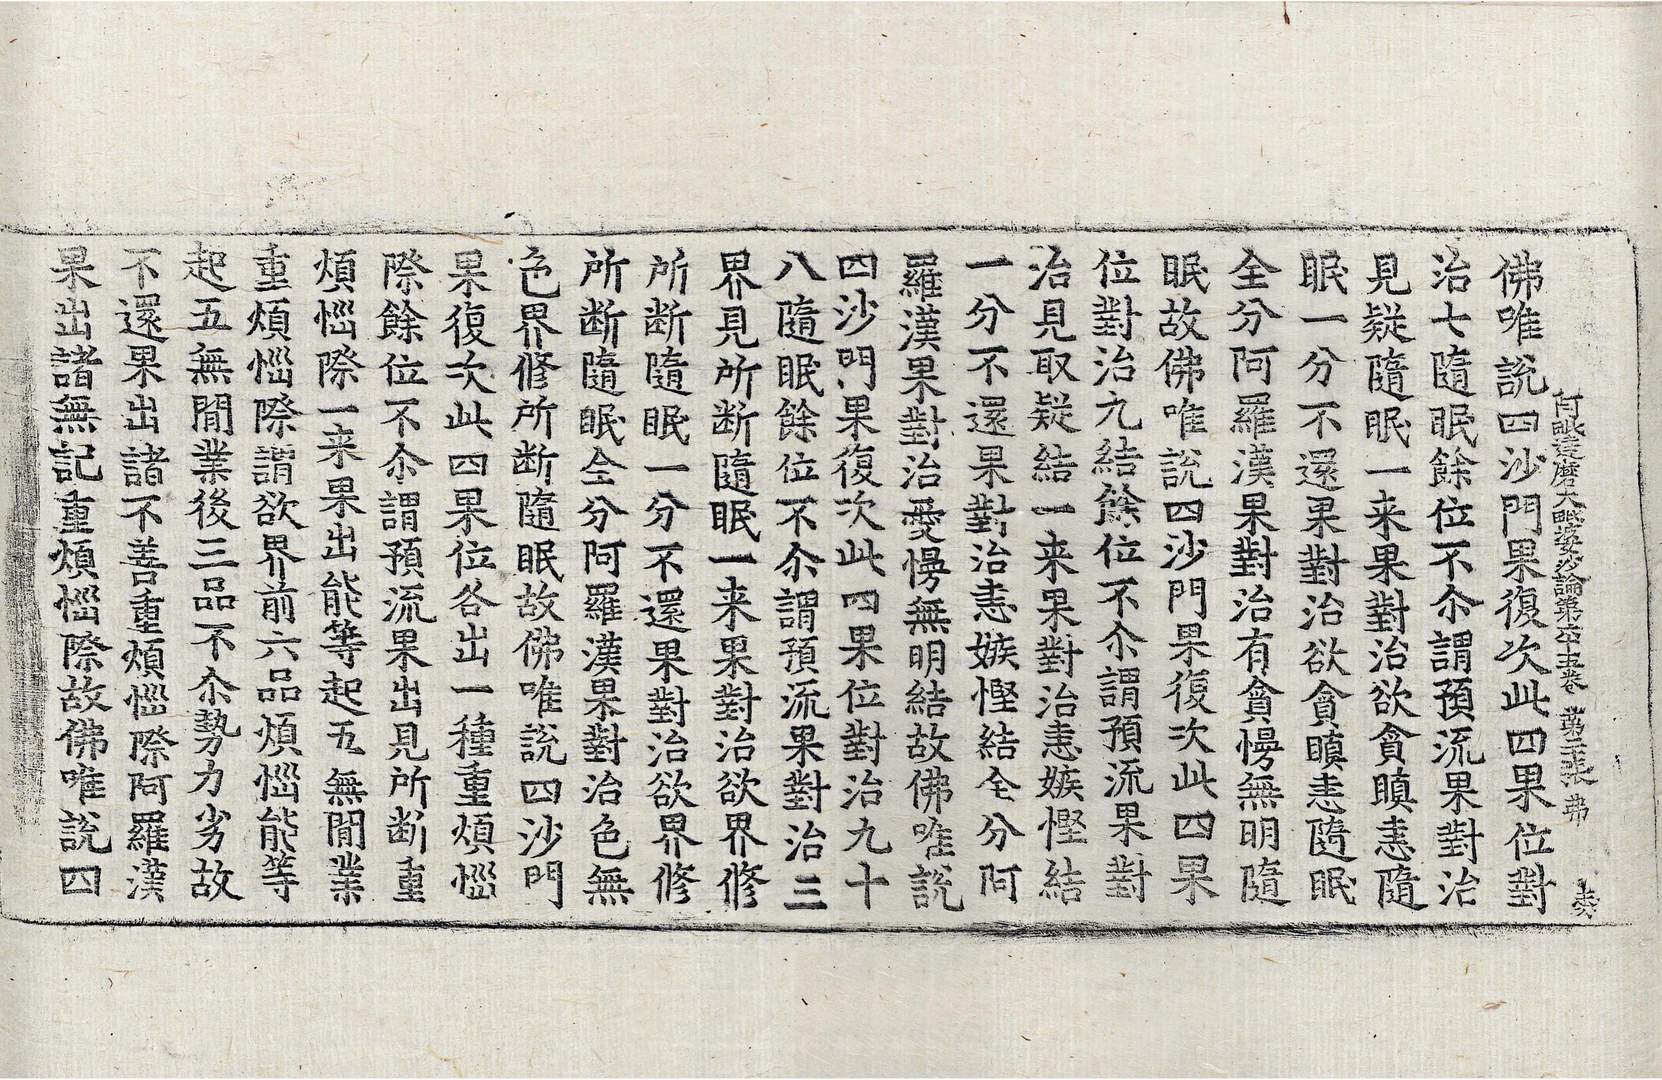 阿毗達磨大毗婆沙論第六十五卷　第三張　弗
佛唯說四沙門果復次此四果位對
治七隨眠餘位不尒謂預流果對治
見疑隨眠一来果對治欲貪瞋恚隨
眠一分不還果對治欲貪瞋恚隨眠
全分阿羅漢果對治有貪慢無明隨
眠故佛唯說四沙門果復次此四果
位對治九結餘位不尒謂預流果對
治見取疑結一来果對治恚嫉慳結
一分不還果對治恚嫉慳結全分阿
羅漢果對治愛慢無明結故佛唯說
四沙門果復次此四果位對治九十
八隨眠餘位不尒謂預流果對治三
界見所断隨眠一来果對治欲界修
所断隨眠一分不還果對治欲界修
所断隨眠全分阿羅漢果對治色無
色界修所断隨眠故佛唯說四沙門
果復次此四果位各出一種重煩惱
際餘位不尒謂預流果出見所断重
煩惱際一来果出能等起五無間業
重煩惱際謂欲界前六品煩惱能等
起五無間業後三品不尒勢力劣故
不還果出諸不善重煩惱際阿羅漢
果出諸無記重煩惱際故佛唯說四